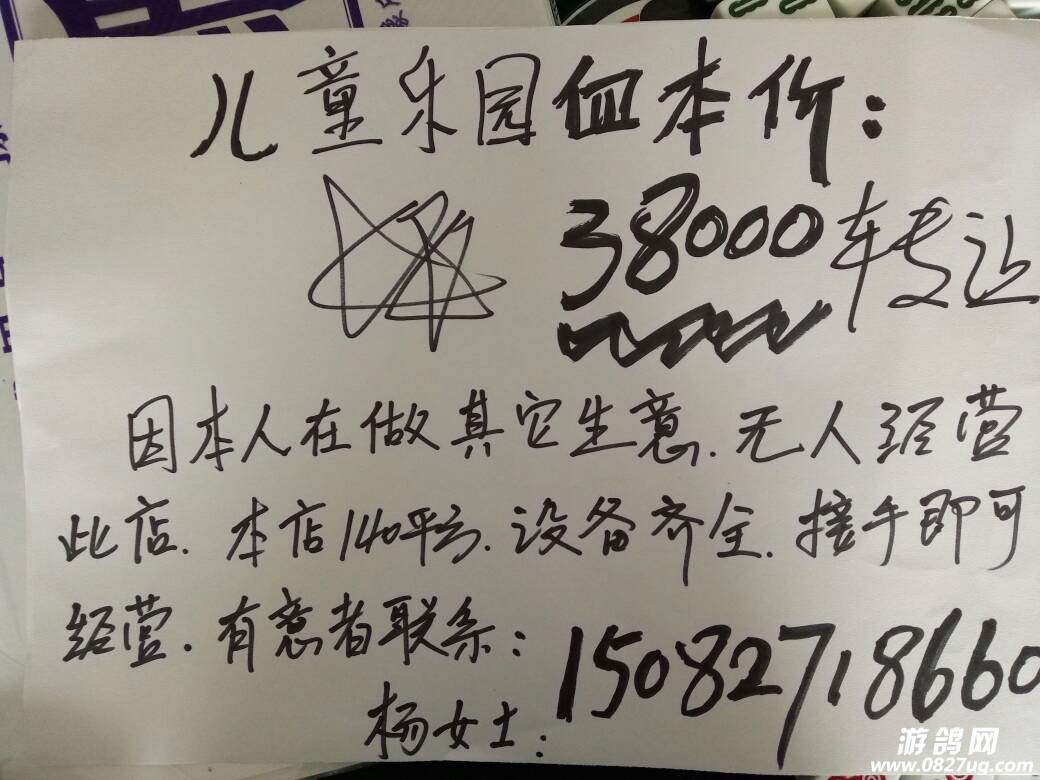 儿童乐园血本价：
38000转让
因本人在做其它生意.无人经营
此店.本店140平方.设备齐全.接手即可
经营.有意者联系：
杨女士：15082718660
游鸽网
www.0827ug.com